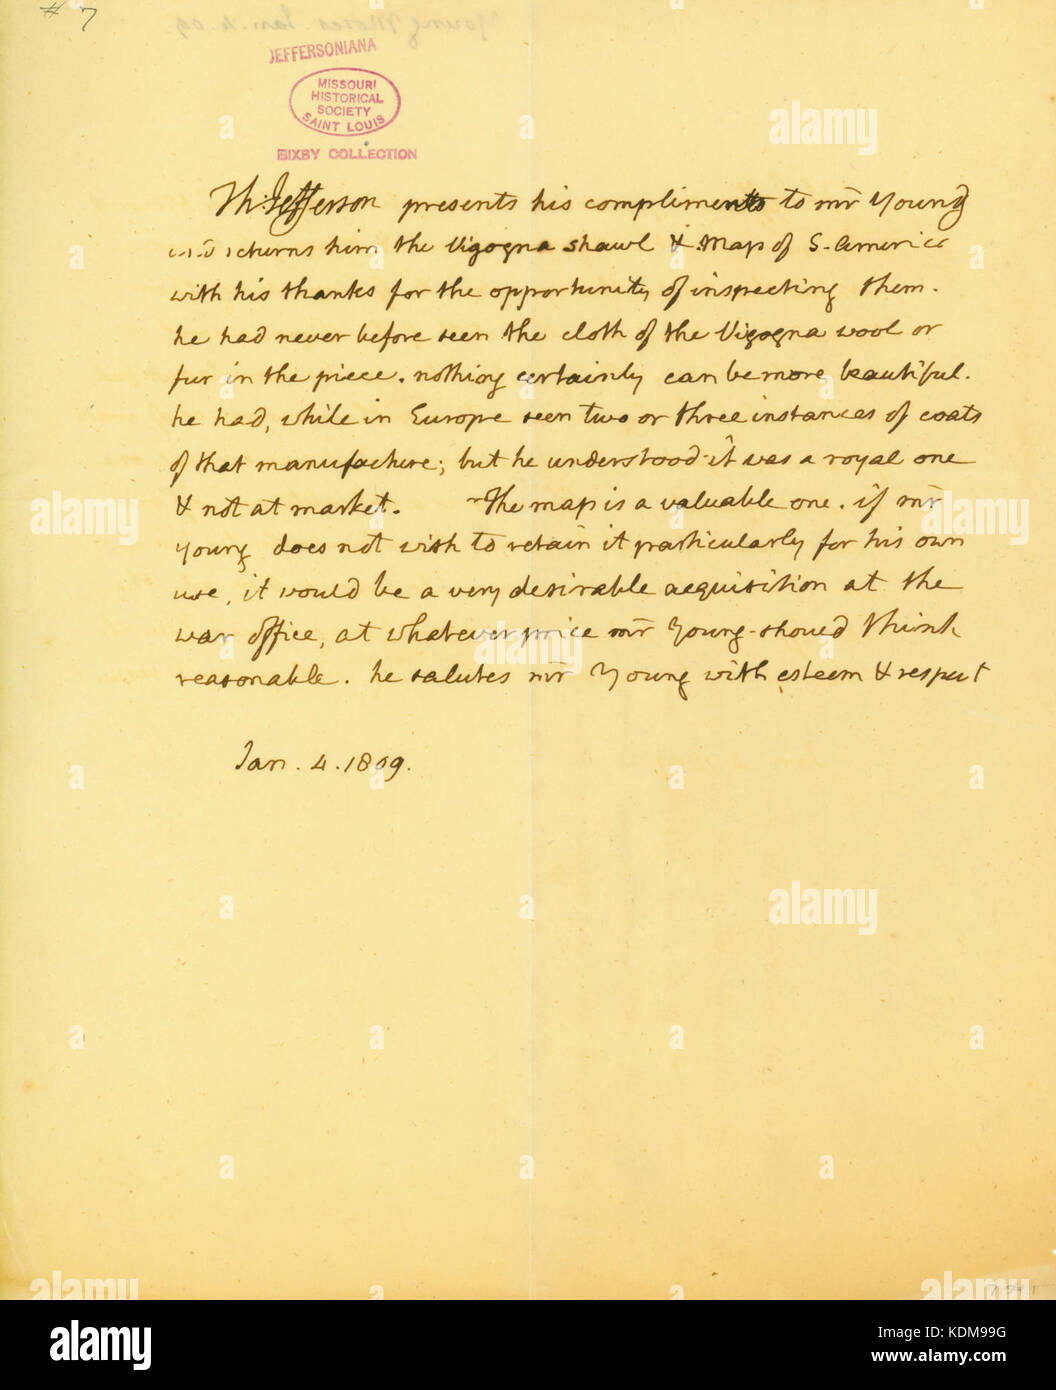 # 7
Young Moses Jan. 4. 09.
JEFFERSONIANA
MISSOURI
HISTORICAL
SOCIETY
SAINT LOUIS
BIXBY COLLECTION
Th: Jefferson presents his compliments to mr Young
and returns him the Vigogna shawl & Map of S. America
with his thanks for the opportunity of inspecting them.
he had never before seen the cloth of the Vigogna wool or
fur in the piece. nothing certainly can be more beautiful.
he had, while in Europe seen two or three instances of coats
of that manufacture; but he understood it was a royal one
& not at market. The map is a valuable one. if mr
Young does not wish to retain it particularly for his own
use, it would be a very desirable acquisition at the
war office, at whatever price mr Young should think
reasonable. he salutes mr Young with esteem & respect
Jan. 4. 1809.
alamy
alamy
alamy
alamy
alamy
alamy
alamy
alamy
a alamy
Image ID: KDM99G
www.alamy.com